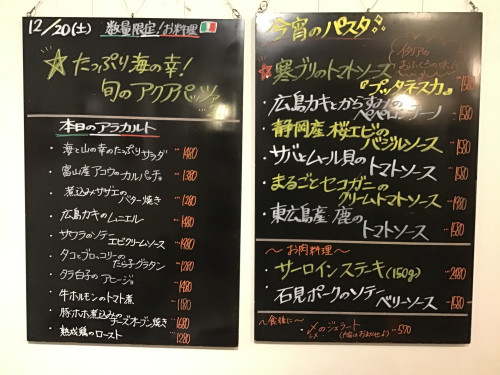 12/20(土) 数量限定!お料理
☆たっぷり海の幸!
旬のアクアパッツァ
本日のアラカルト
・海と山の幸のたっぷりサラダ …1480
・富山産アコウのカルパチョ …1380
・煮込みサザエの
バター焼き …1280
・広島カキのムニエル …1480
・サワラのソテー
エビクリームソース …1480
・タコとブロッコリーの
たらこグラタン …1280
・タラ白子のアヒージョ
・牛ホルモンのトマト煮 …1180
・豚ホホ煮込みの
チーズオーブン焼き …1680
・熟成鶏のロースト …1280
今宵のパスタ
イタリアの
おふくろの味
☆寒ブリのトマトソース
『プッタネスカ』 …1580
・広島カキとからすみの
ペペロンチーノ …1580
・静岡産桜エビの
バジルソース …1580
・サバとムール貝の
トマトソース …1580
・まるごとセコガニの
クリームトマトソース …1980
・東広島産 鹿の
トマトソース …1580
～お肉料理～
・サーロインステーキ(150g) …2480
・石見ポークのソテー
ベリーソース …1580
～食後に～
・〆のジェラート …570
シメ
(内容はおまかせよ)